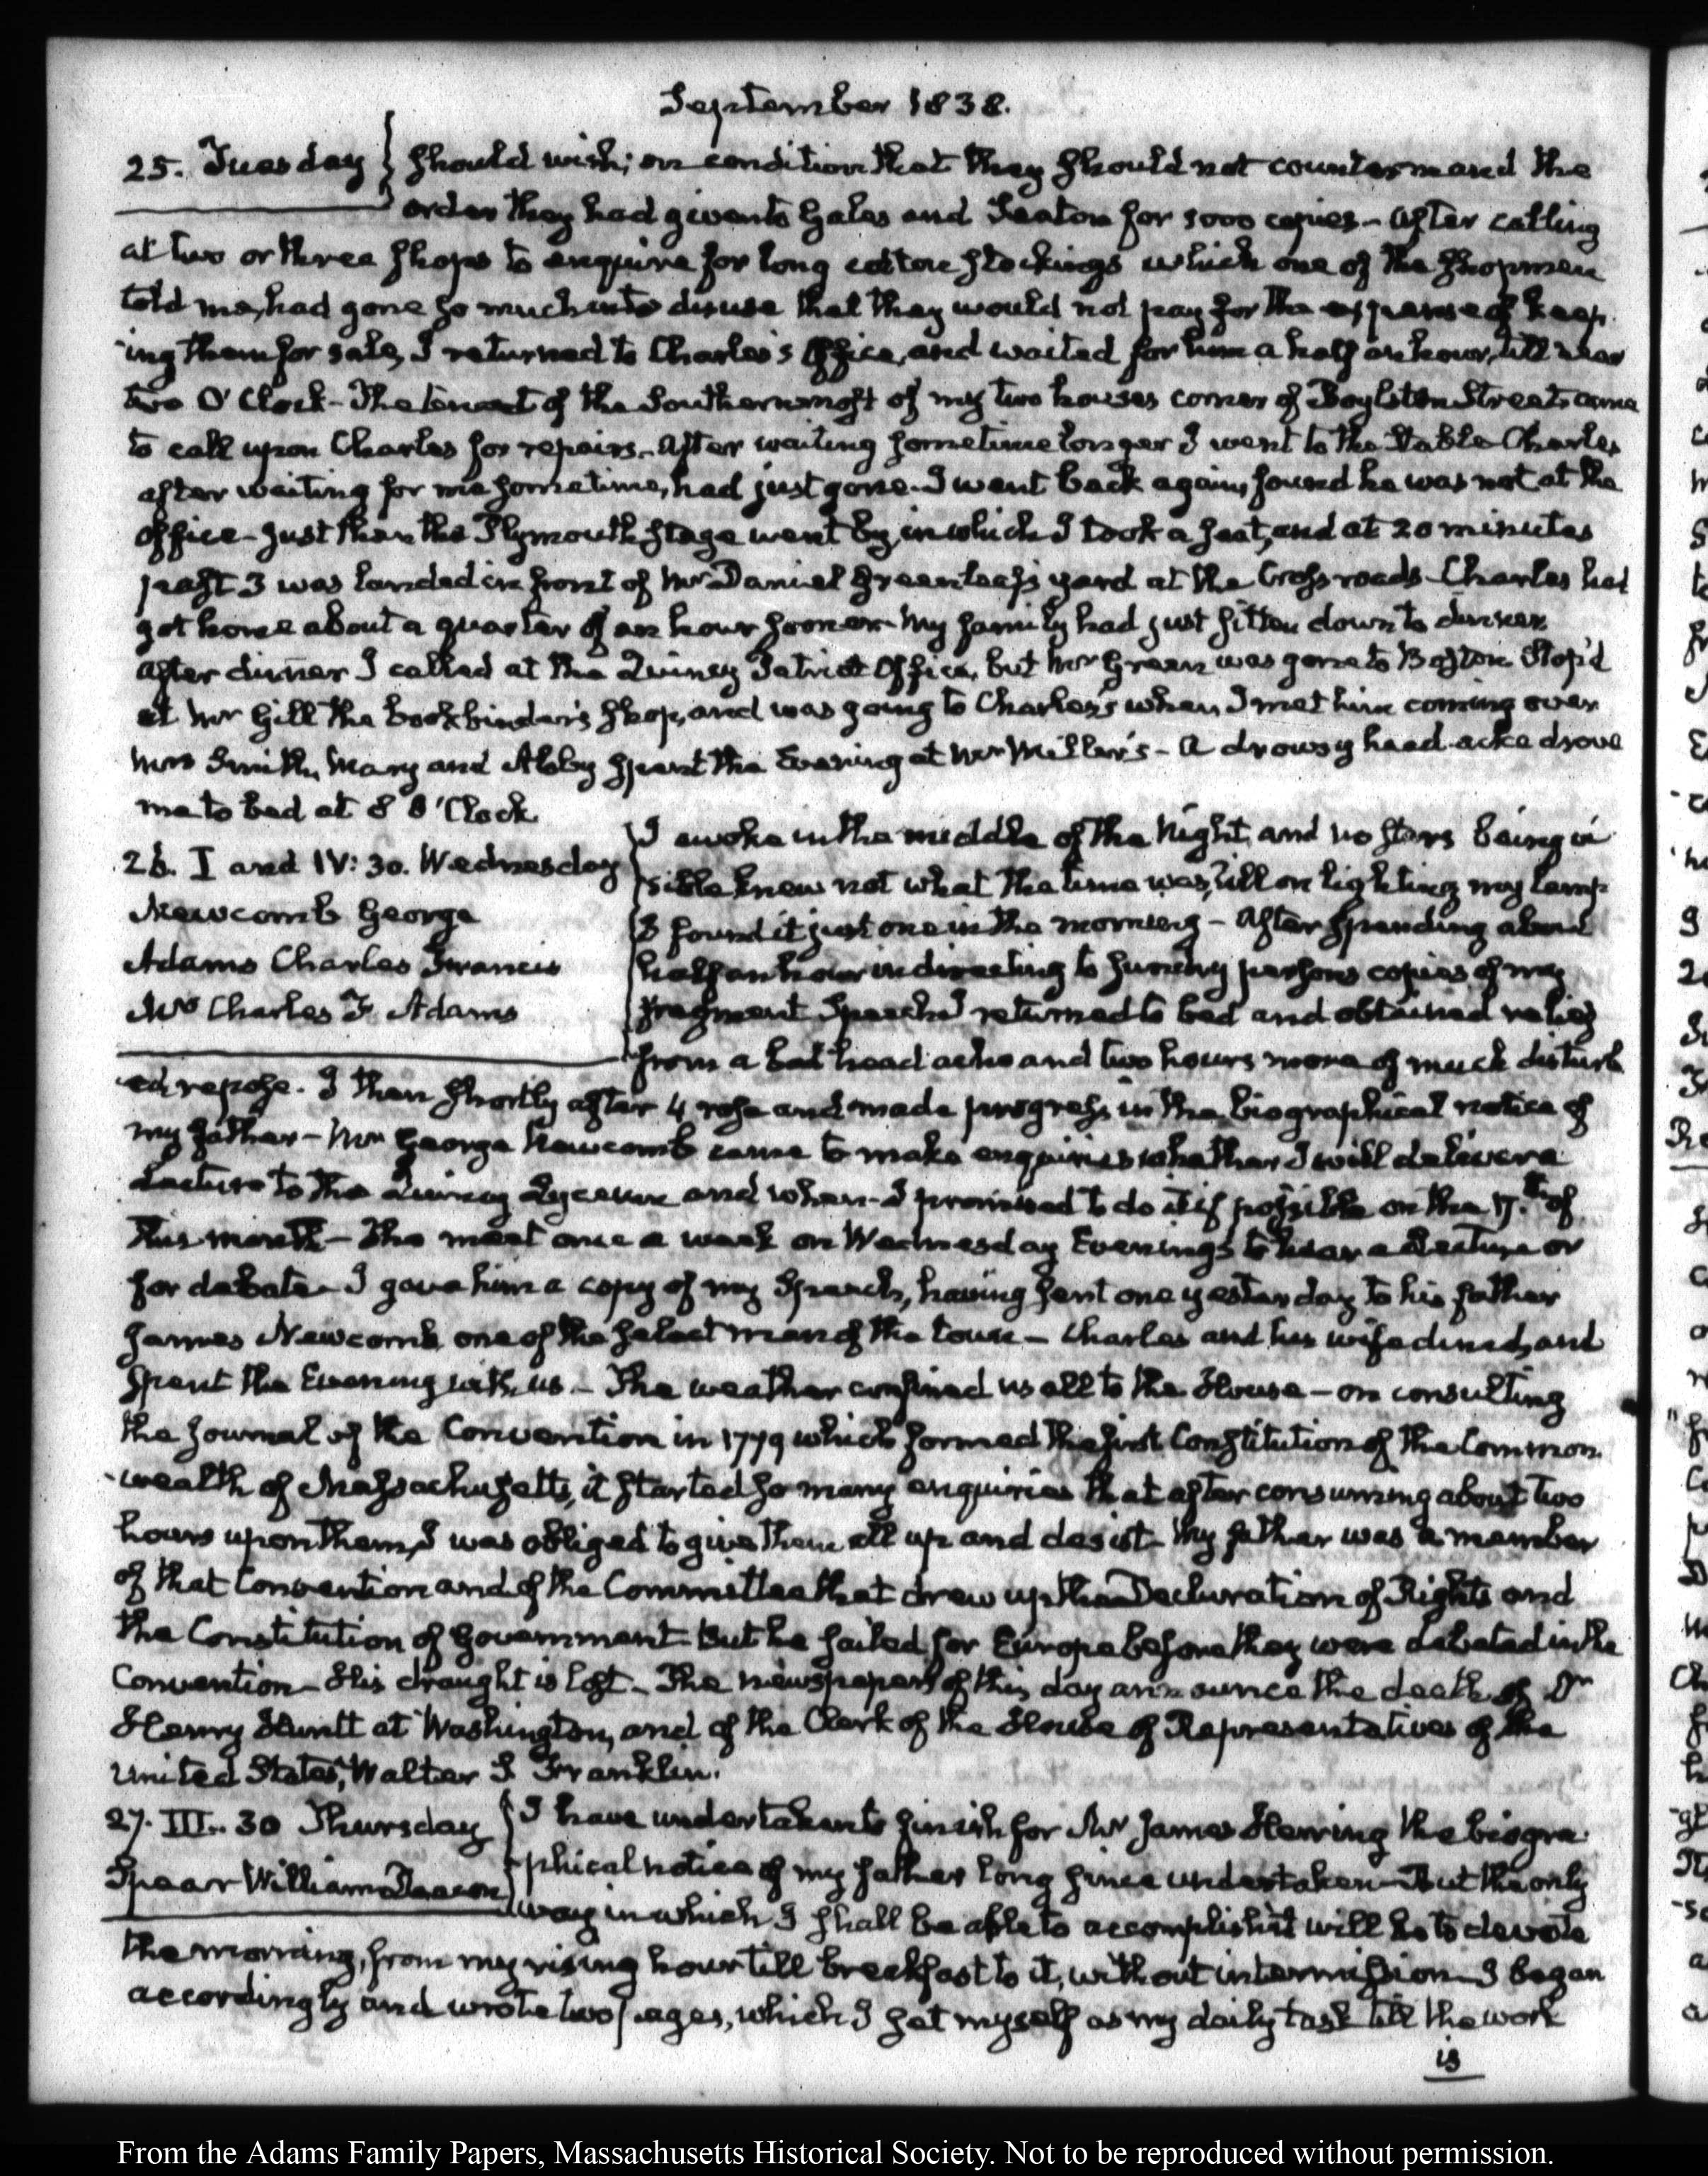 September 1838.
25. Tuesday } should wish; on condition that they should not countermand the
order they had given to Gales and Seaton for 5000 copies – After calling
at two or three shops to enquire for long cotton stockings which one of the shopmen
told me, had gone so much into disuse that they would not pay for the expense of keep-
-ing them for sale, I returned to Charles's Office, and waited for him a half an hour, till near
two O'Clock – The tenant of the Southernmost of my two houses corner of Boylston Street came
to call upon Charles for repairs – After waiting sometime longer I went to the Stable – Charles
after waiting for me sometime, had just gone – I went back again, found he was not at the
office – just then the Plymouth stage went by, in which I took a seat, and at 20 minutes
past 3 was landed in front of Mr Daniel Greenleaf's yard at the Cross roads – Charles had
got home about a quarter of an hour sooner – My family had just sitten down to dinner
After dinner I called at the Quincy Patriot Office, but Mr Green was gone to Boston – Stop'd
at Mr Gill the bookbinder's shop, and was going to Charles's when I met him coming over
Mrs Smith, Mary and Abby spent the Evening at Mr Miller's – A drowsy head-ache drove
me to bed at 8 O'Clock
26. I and IV: 30. Wednesday
Newcomb George
Adams Charles Francis
Mrs Charles F Adams
I awoke in the middle of the Night, and no stars being vi-
-sible knew not what the time was, till on lighting my lamp
I found it just one in the morning – After spending about
half an hour in directing to sundry persons copies of my
fragment Speech I returned to bed and obtained relief
from a bad head ache and two hours more of much disturb-
-ed repose. I then shortly after 4 rose and made progress in the biographical notice of
my father – Mr George Newcomb came to make enquiries whether I will deliver a
Lecture to the Quincy Lyceum and when – I promised to do it if possible on the 17.th of
this month – The meet once a week on Wednesday Evenings to hear a Lecture or
for debate – I gave him a copy of my Speech, having sent one yesterday to his father
James Newcomb one of the Select men of the town – Charles and his wife dined, and
spent the Evening with us – The weather confined us all to the House – on consulting
the Journal of the Convention in 1779 which formed the first Constitution of the Common-
-wealth of Massachusetts, it started so many enquiries that after consuming about two
hours upon them, I was obliged to give them all up and desist – My father was a member
of that Convention and of the Committee that drew up the Declaration of Rights and
the Constitution of Government – But he sailed for Europe before they were debated in the
Convention – His draught is lost – The newspapers of this day announce the death of Dr
Henry Huntt at Washington, and of the Clerk of the House of Representatives of the
United States, Walter S Franklin.
27. III.. 30 Thursday
Spear William Deacon
I have undertaken to finish for Mr James Herring the biogra-
-phical notice of my father long since undertaken – But the only
way in which I shall be able to accomplish it will be to devote
the morning, from my rising hour till breakfast to it, without intermission – I began
accordingly and wrote two pages, which I set myself as my daily task till the work
is
From the Adams Family Papers, Massachusetts Historical Society. Not to be reproduced without permission.